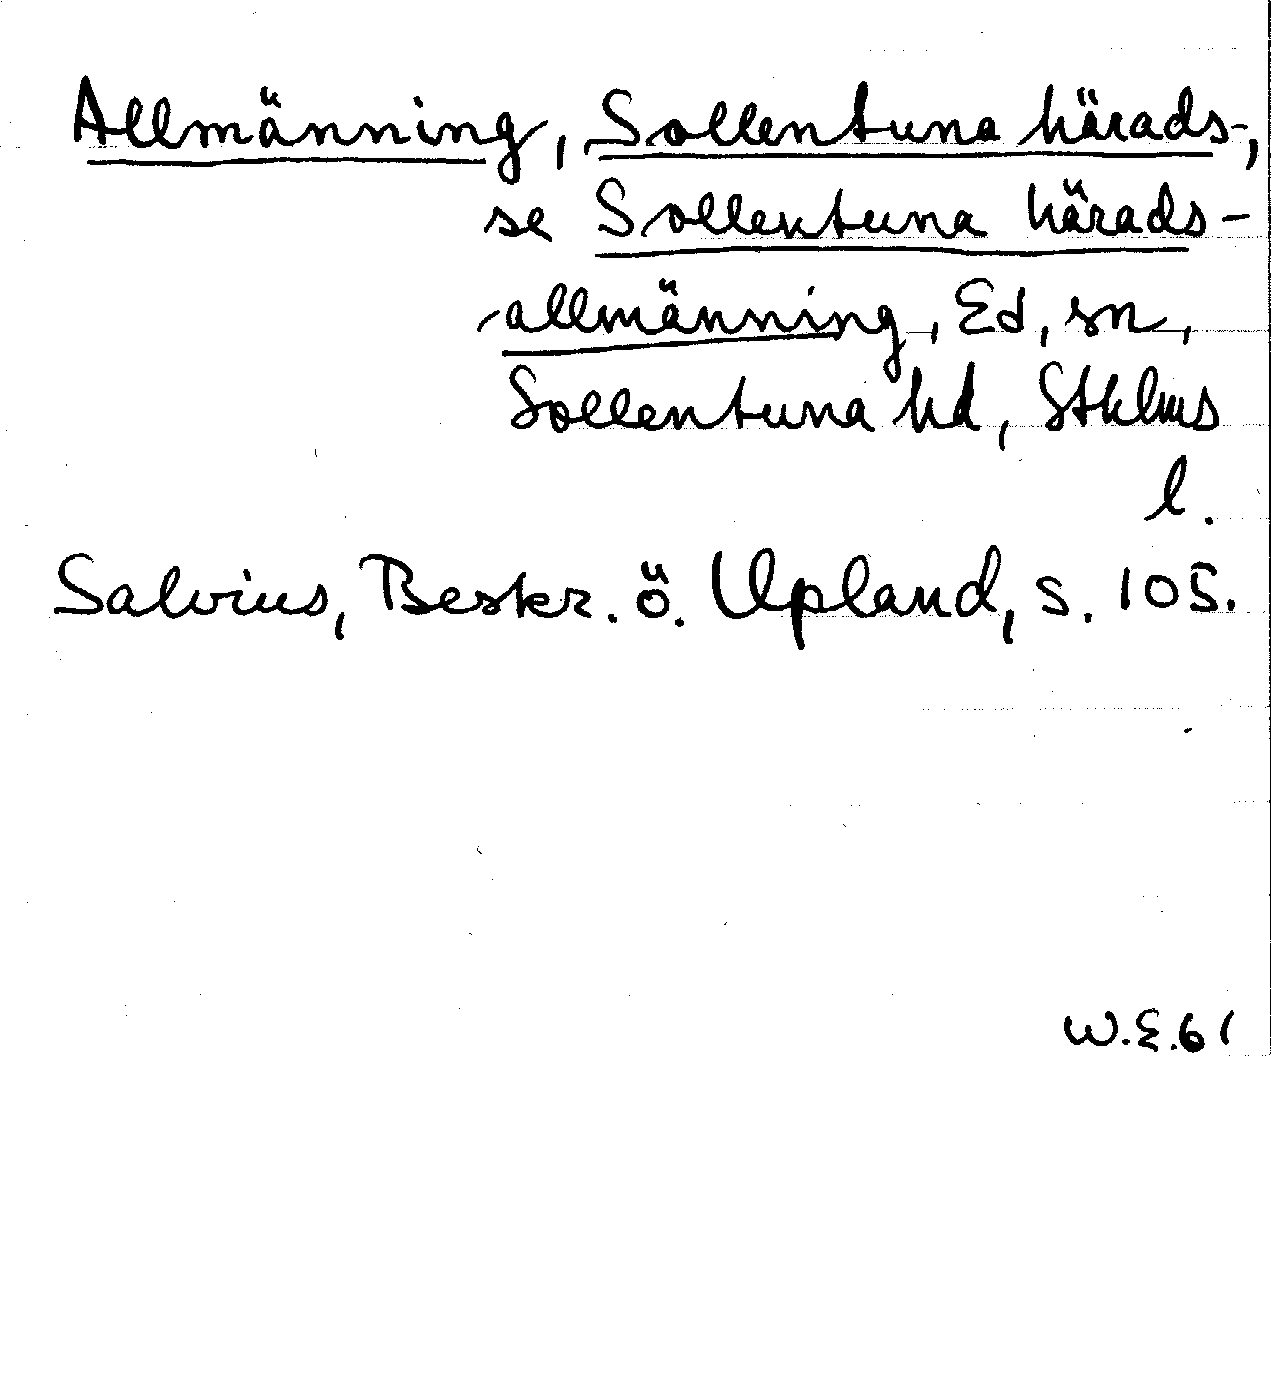 Allmänning, Sollentuna härads-,
se Sollentuna härads-
allmänning, Ed, sn,
Sollentuna hd, Sthlms
l.
Salvius, Beskr. ö. Upland, s. 105.
W.E.61